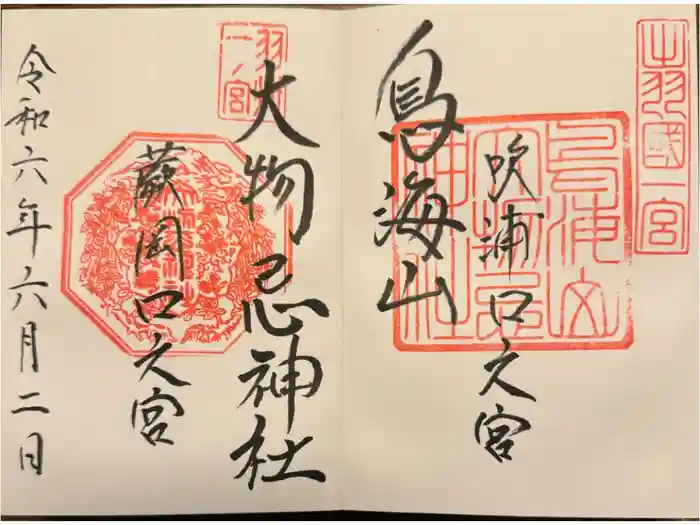 出羽國一宮
吹浦口之宮
鳥海山
羽州
一ノ宮
大物忌神社
蕨岡口之宮
令和六年六月二日